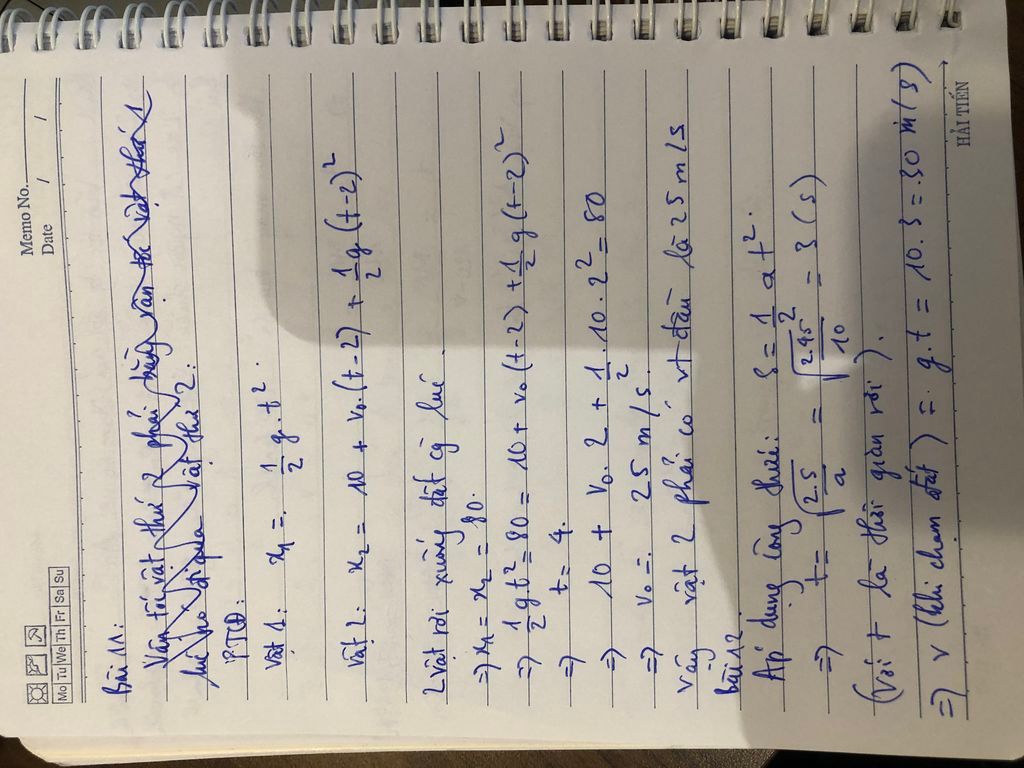 Memo No.
Date / /
Mo Tu We Th Fr Sa Su
Bài 11:
Vận tốc vật thứ 2 phải bằng vận tốc vật thứ 1
lúc nó đi qua vật thứ 2:
PTCĐ:
Vật 1: x₁ = 1/2 g.t².
Vật 2: x₂ = 10 + v₀.(t-2) + 1/2 g (t-2)²
2 vật rơi xuống đất cg lúc
=> x₁ = x₂ = 80.
=> 1/2 g.t² = 80 = 10 + v₀ (t-2) + 1/2 g (t-2)²
=> t = 4.
=> 10 + v₀. 2 + 1/2 . 10 . 2² = 80
=> v₀ = 25 m/s.
Vậy vật 2 phải có vt đầu là 25 m/s
Bài 12
Áp dụng công thức: s = 1/2 a t².
=> t = √(2.s/a) = √(2.45²/10) = 3 (s)
(với t là thời gian rơi).
=> v (khi chạm đất) = g.t = 10.3 = 30 m/s)
HẢI TIẾN